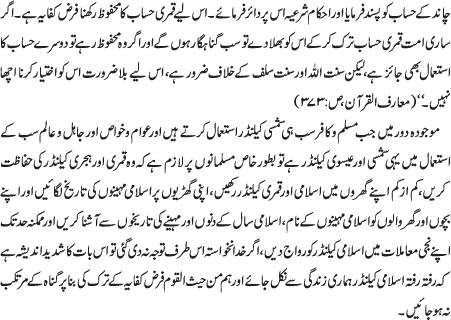 چاند کے حساب کو پسند فرمایا اور احکام شرعیہ اس پر دائر فرمائے۔ اس لیے قمری حساب کا محفوظ رکھنا فرض کفایہ ہے۔ اگر
ساری امت قمری حساب ترک کر کے اس کو بھلا دے تو سب گناہگار ہوں گے اور اگر وہ محفوظ رہے تو دوسرے حساب کا
استعمال بھی جائز ہے، لیکن سنت اللہ اور سنت سلف کے خلاف ضرور ہے، اس لیے بلا ضرورت اس کو اختیار کرنا اچھا
نہیں۔‘‘ (معارف القرآن ص: ۳۷۳)
موجودہ دور میں جب مسلم و کافر سب ہی شمسی کیلنڈر استعمال کرتے ہیں اور عوام و خواص اور جاہل و عالم سب کے
استعمال میں یہی شمسی اور عیسوی کیلنڈر ہے تو بطور خاص مسلمانوں پر لازم ہے کہ وہ قمری اور ہجری کیلنڈر کی حفاظت
کریں، کم از کم اپنے گھروں میں اسلامی اور قمری کیلنڈر رکھیں، اپنی گھڑیوں پر اسلامی مہینوں کی تاریخ لگائیں اور اپنے
بچوں اور گھر والوں کو اسلامی مہینوں کے نام، اسلامی سال کے دنوں اور مہینے کی تاریخوں سے آشنا کریں اور ممکنہ حد تک
اپنے نجی معاملات میں اسلامی کیلنڈر کو رواج دیں، اگر خدانخواستہ اس طرف توجہ نہ دی گئی تو اس بات کا شدید اندیشہ ہے
کہ رفتہ رفتہ اسلامی کیلنڈر ہماری زندگی سے نکل جائے اور ہم من حیث القوم فرض کفایہ کے ترک کی بنا پر گناہ کے مرتکب
نہ ہو جائیں۔